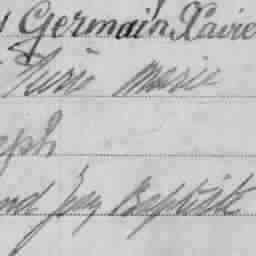 Germain Xavie
marie
eph
nd Jean Baptiste